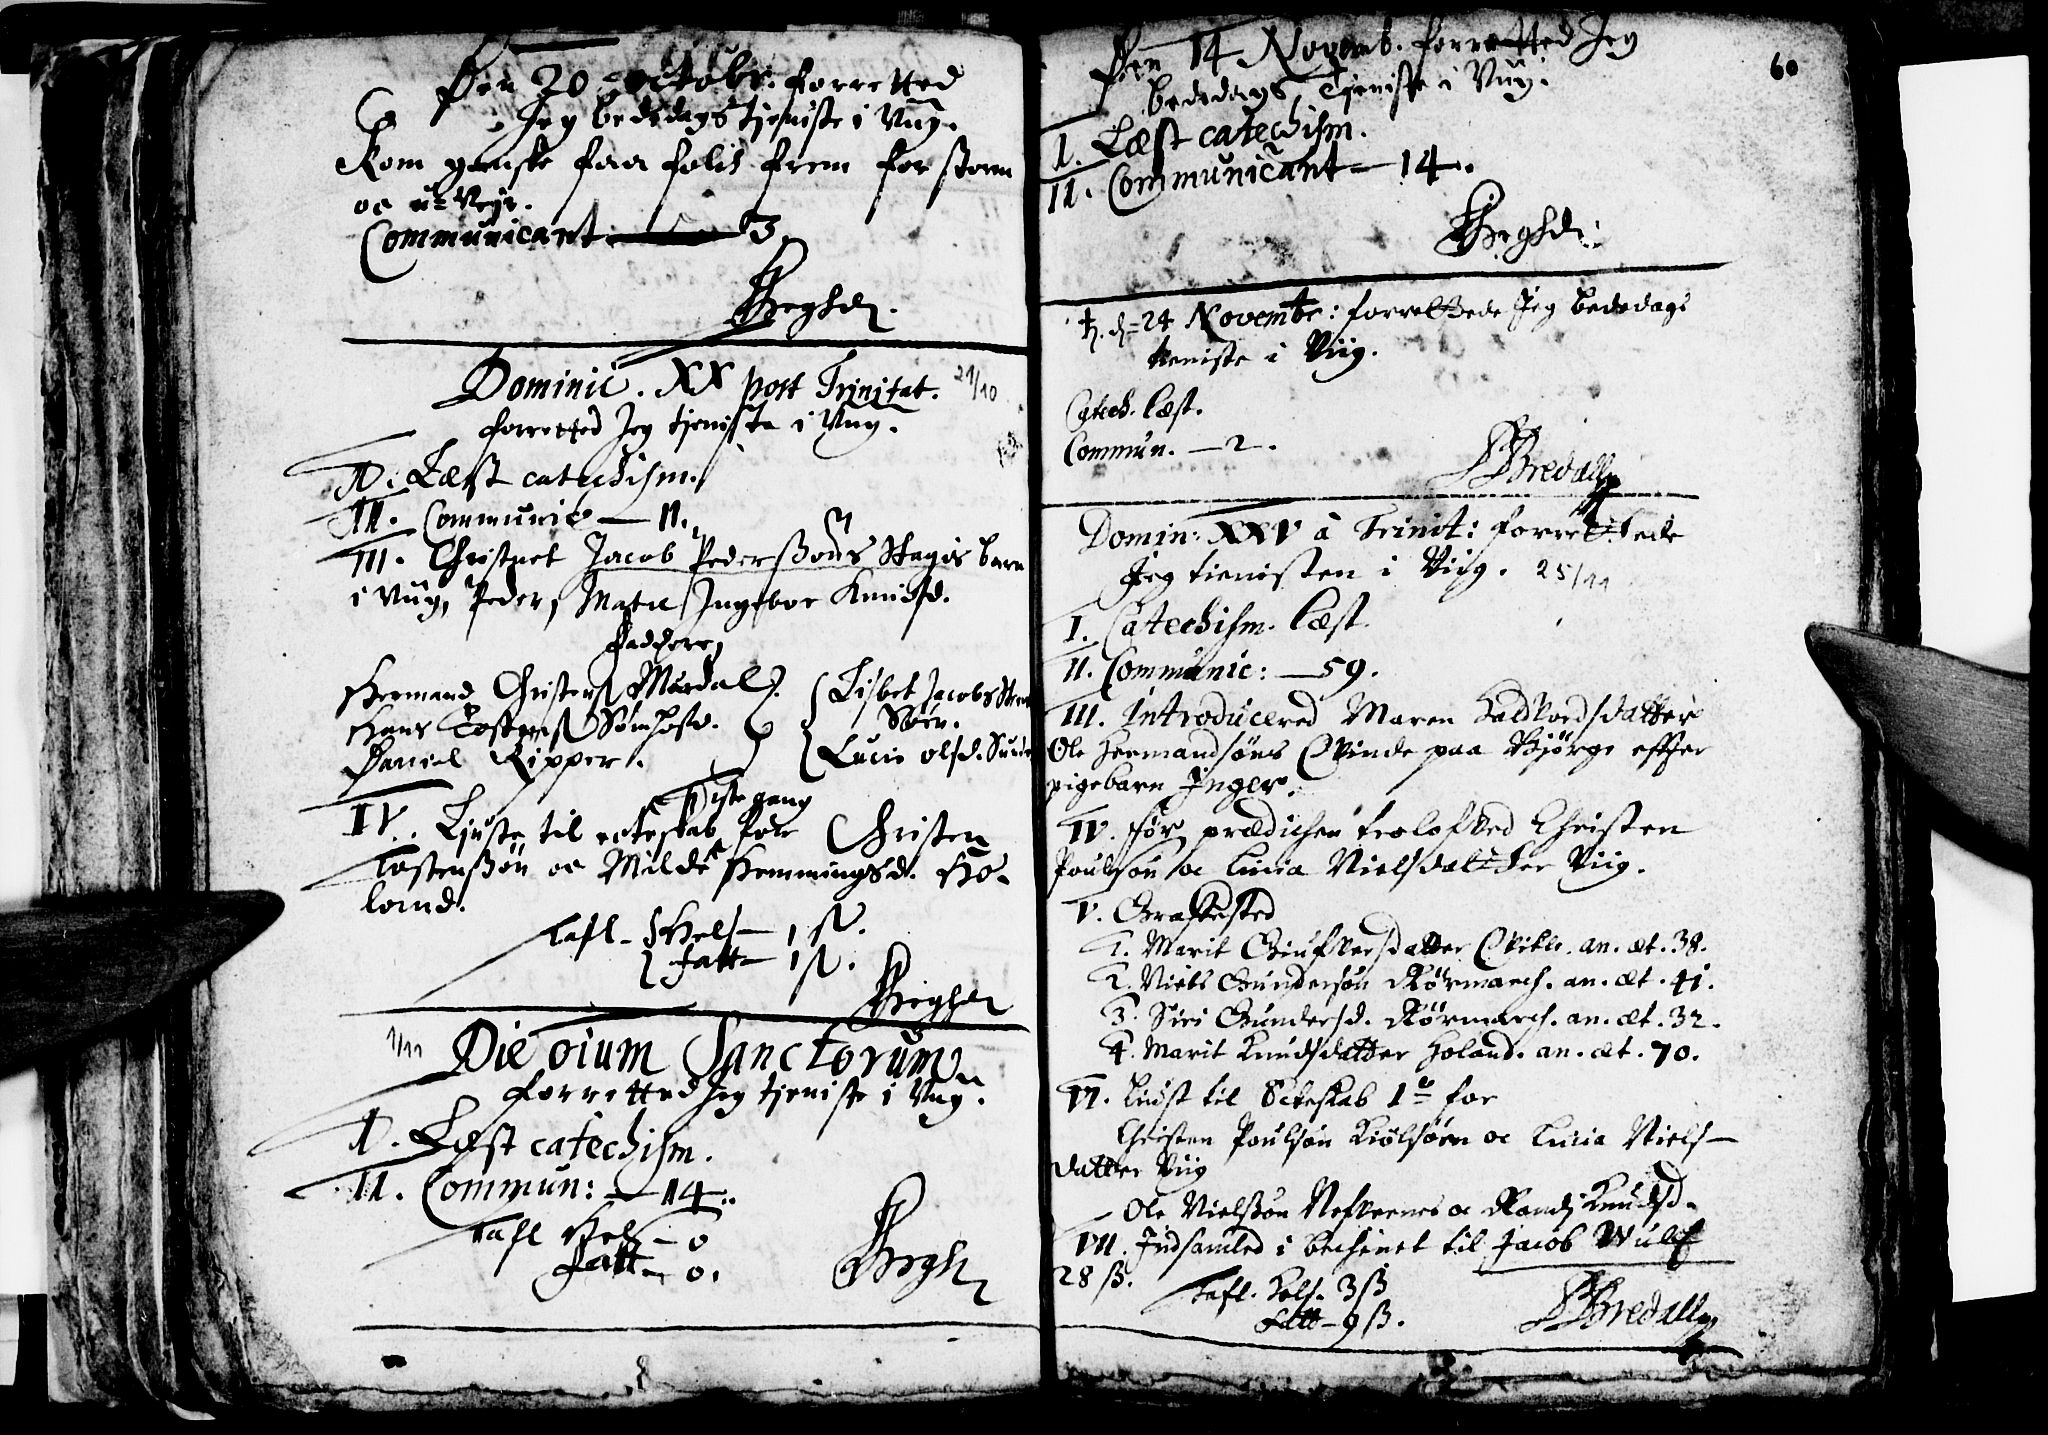 Den 20 octobr. forretted
Jeg bededags tjeniste i Vüg.
Kom ganske faa folck frem for storm
oc u-Vejr.
Communicant 3.
Dominic. XX post Trinitat. 21/10
forretted Jeg tjeniste i Vüg.
I. Læst catechism.
II. Communic — 11.
III. Christnet Jacob Pederssöns Stagis barn
i Vüg, Peder, Mater Ingebor Knudsd.
Faddere,
Hermand Christens Mørdal.
Hans Tostens Sömhofd.
Daniel Ripper.
Lisbet Jacobs
Sörv.
Lucie olsd. Sunde
IV. Liuste til ecteskab siste gang for Christen
Tostensßön oc Milde Hemmingsd. Ho-
land.
Tafl - Hels — 1 ß.
Fatt — 1 ß.
1/11 Die oium Sanctorum
forretted Jeg tjeniste i Vüg.
I. Læst catechism.
II. Commun: — 14.
Tafl Hels — 0
Fatt — 0.
60
Den 14 Novemb. forretted Jeg
bededags Tjeniste i Vüg.
I. Læst catechism.
II. Communicant — 14.
♄. d. 24 Novembr: forrettede Jeg bededags
tieniste i Viig.
Catech. læst.
Commun. — 2.
Bredally
Domin: XXV à Trinit: forrettede
Jeg tienisten i Viig. 25/11
I. Catechism. læst.
II. Communic: — 59.
III. Introducered Maren Haldvordsdatter
Ole Hermandsöns Qvinde paa Biörge effter
pigebarn Inger.
IV. för prædichen trolofved Christen
Poulsön oc Lucia Nielsdatter Viig.
V. Graffæsted
1. Marit Giufversdatter Qvitle. an. æt. 38.
2. Niels Gundersön Rörmarch. an. æt. 41.
3. Siri Gundersd. Rörmarch. an. æt. 32.
4. Marit Knudsdatter Holand. an. æt. 70.
VI. liust til Ecteskab 1º for
Christen Poulsön Kiölsöen oc Lucia Niels-
datter Viig
Ole Nielsön Nefvernes oc Randi Knudsd.
VII. Indsamled i bechenet til Jacob Wulf
28 ß.
Tafl. Hels. 3 ß
Fatt — 9 ß.
Bredally